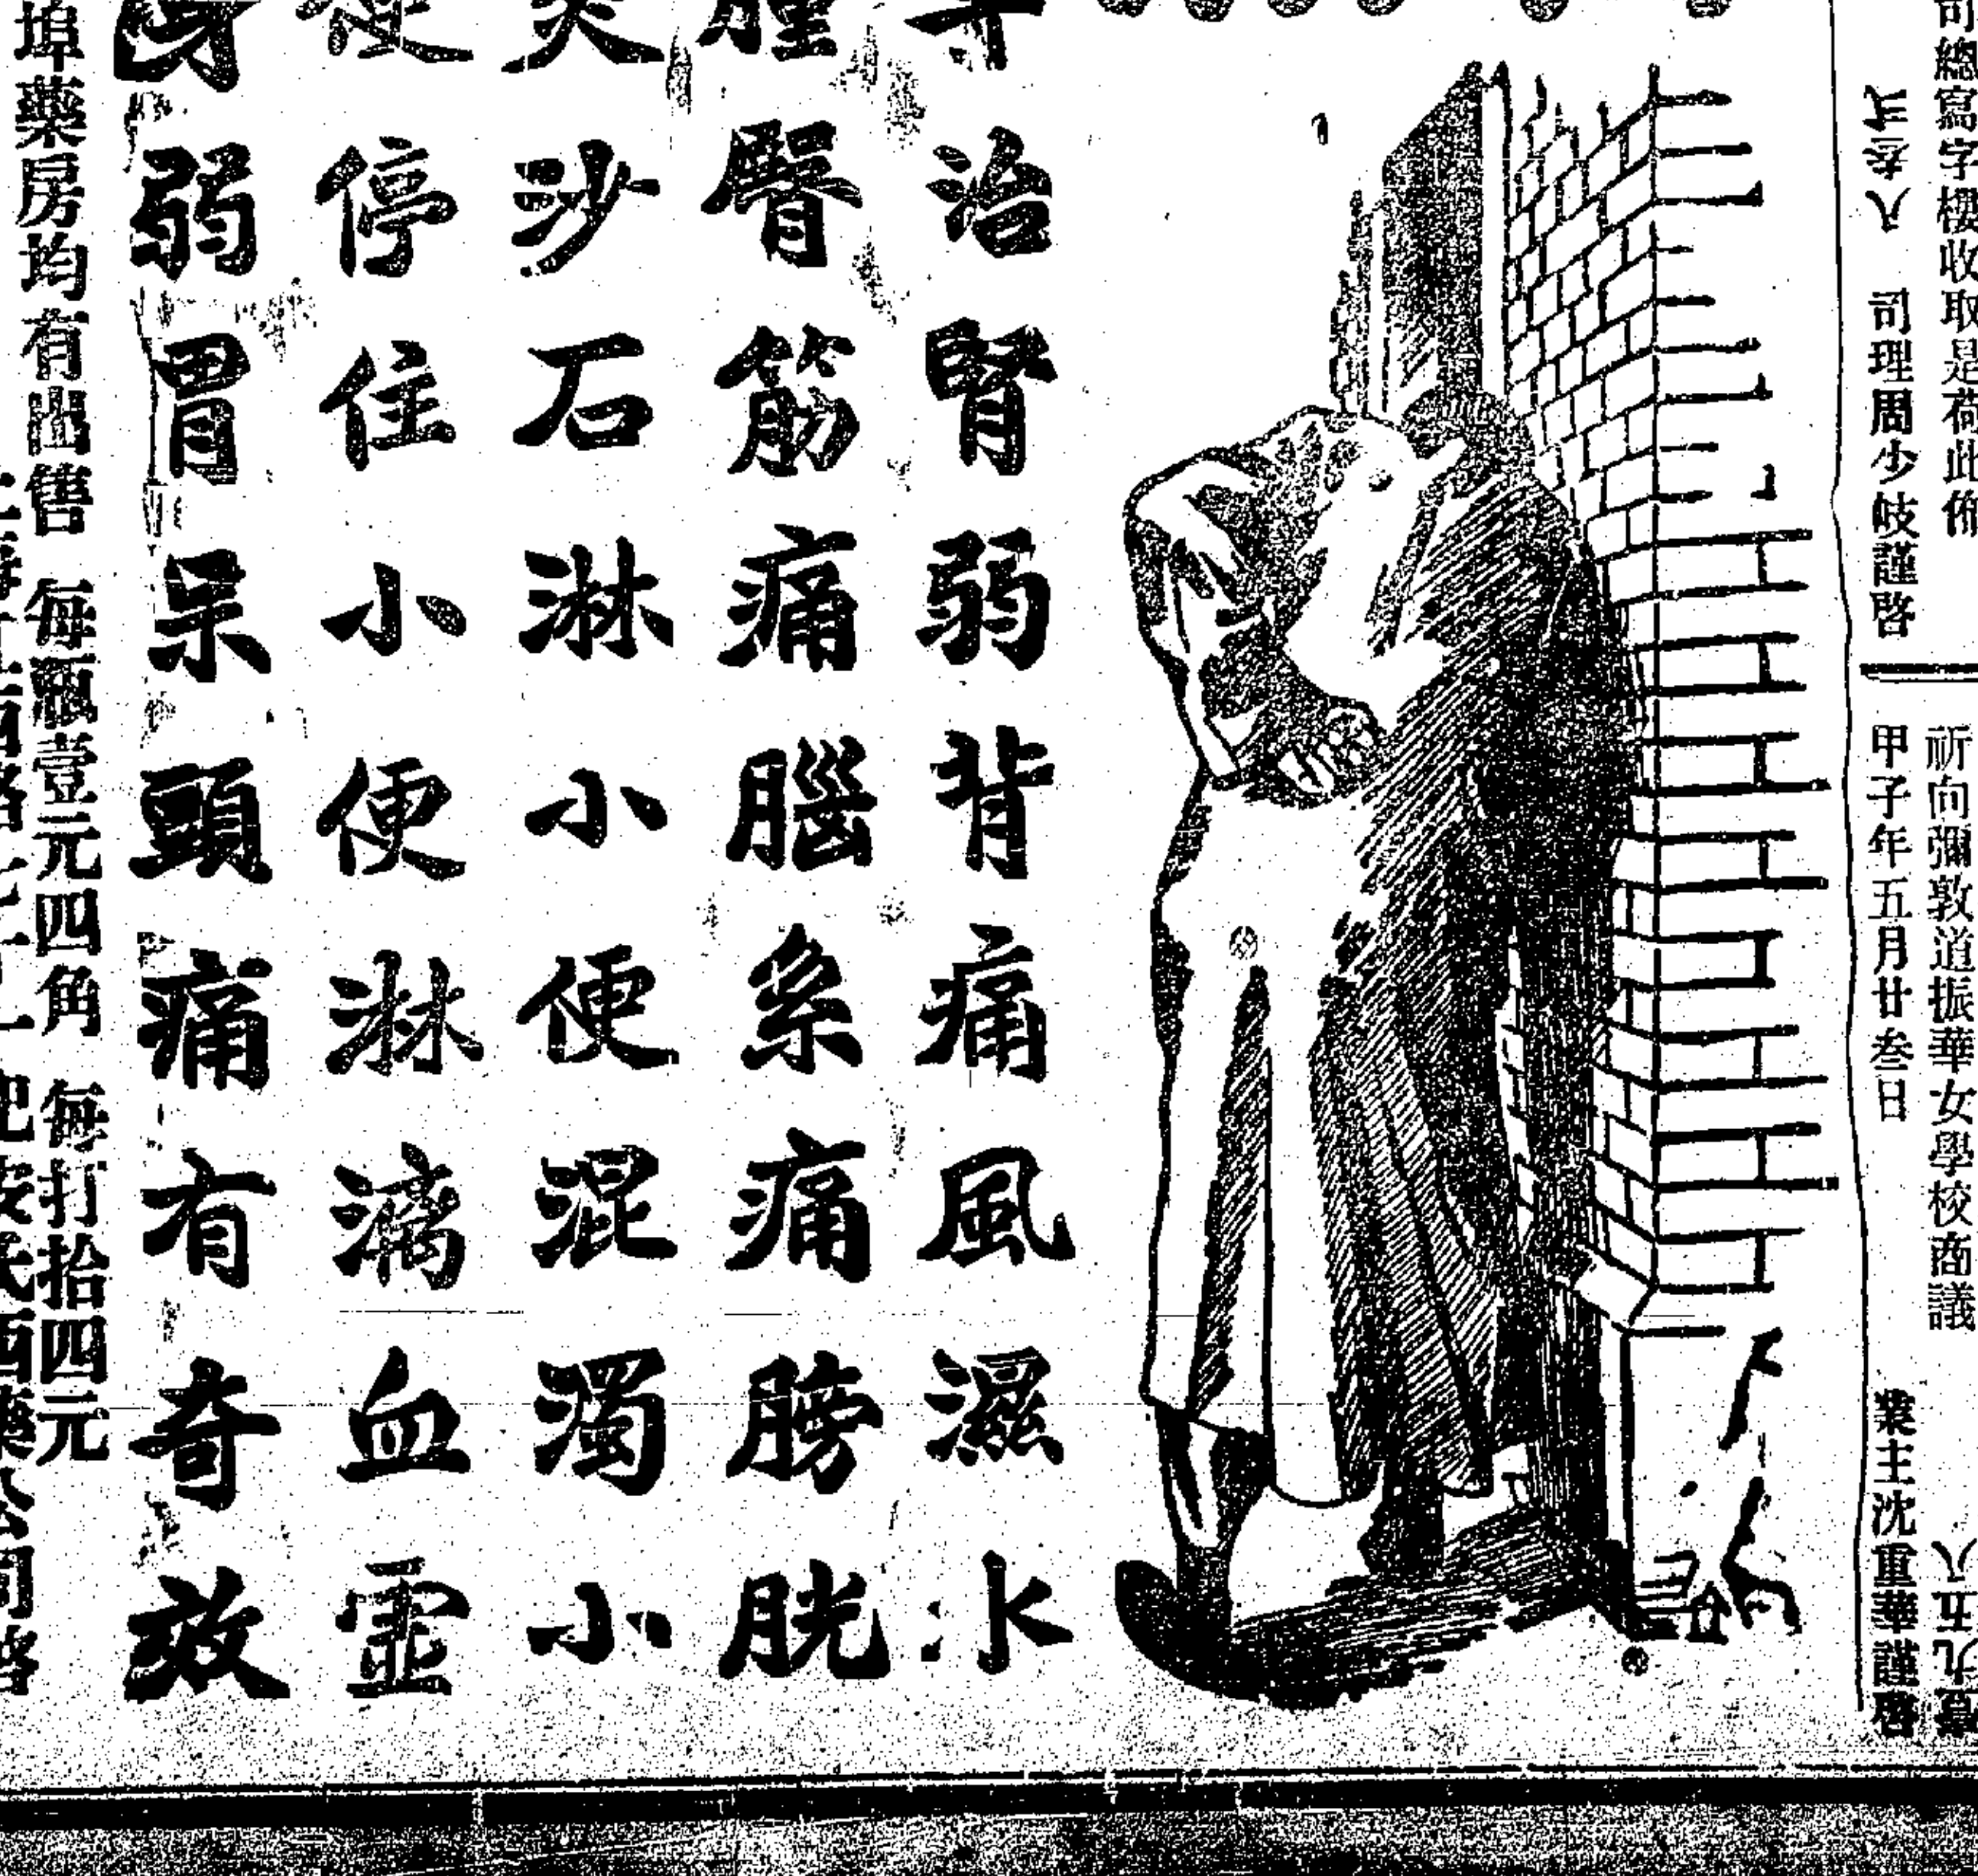 司總寫字樓收取是荷此佈
司理周少岐謹啓
祈向彌敦道振華女學校商議
甲子年五月廿叁日
業主沈重華謹啓
治腎弱背痛風濕水
腫臀筋痛腦系痛膀胱
炎沙石淋小便混濁小
便停住小便淋漓血虛
身弱胃呆頭痛有奇效
埠藥房均有出售 每瓶壹元四角 每打拾四元